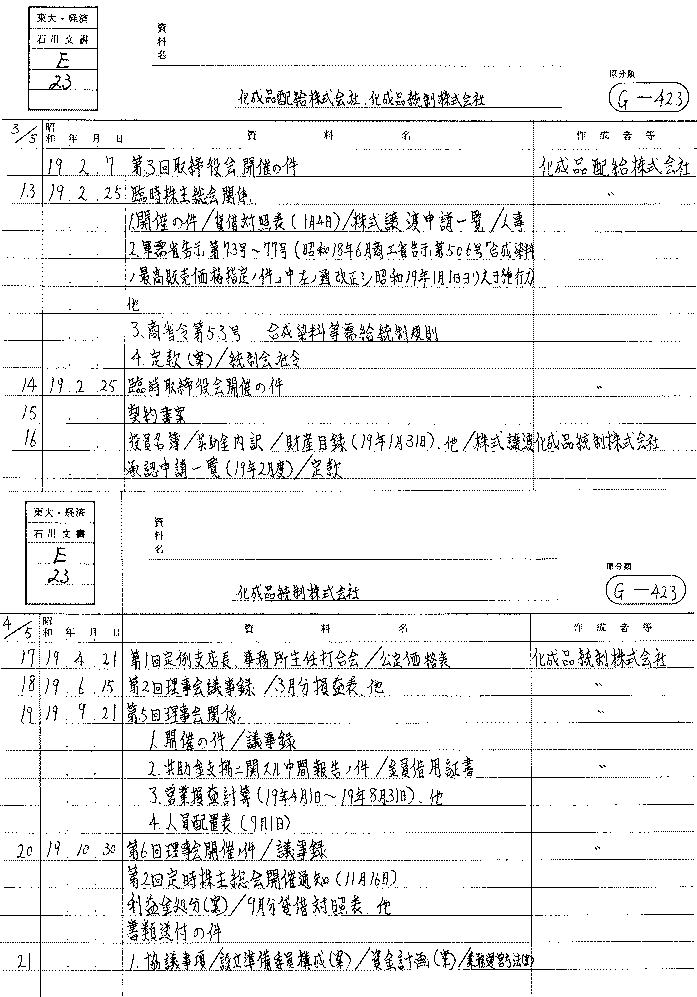 東大・経済
石川文書
E
23
資料名
化成品配給株式会社、化成品統制株式会社
原分類
G-423
3/5 昭和 年 月 日 資料名 作成者等
19 2 7 第3回取締役会開催の件 化成品配給株式会社
13 19 2 25 臨時株主総会関係 〃
1.開催の件/貸借対照表(1月4日)/株式譲渡申請一覧/人事
2.軍需省告示第73号〜77号(昭和18年6月商工省告示第506号「合成染料
ノ最高販売価格指定ノ件」中左ノ通改正シ昭和19年1月1日ヨリ之ヲ施行)
他
3.商省令第53号 合成染料等需給統制規則
4.定款(案)/統制会社令
14 19 2 25 臨時取締役会開催の件 〃
15 契約書案
16 役員名簿/共助金内訳/財産目録(19年1月31日)、他/株式譲渡 化成品統制株式会社
承認申請一覧(19年2月度)/定款
東大・経済
石川文書
E
23
資料名
化成品統制株式会社
原分類
G-423
4/5 昭和 年 月 日 資料名 作成者等
17 19 4 21 第1回定例支店長、事務所主任打合会/公定価格表 化成品統制株式会社
18 19 6 15 第2回理事会議事録/3月分損益表、他 〃
19 19 9 21 第5回理事会関係 〃
1.開催の件/議事録
2.共助金支払ニ関スル中間報告ノ件/金員借用証書 〃
3.営業損益計算(19年4月1日〜19年8月31日)、他
4.人員配置表(9月1日)
20 19 10 30 第6回理事会開催ノ件/議事録 〃
第2回定時株主総会開催通知(11月16日)
利益金処分(案)/9月分貸借対照表、他
書類送付の件
21 1.協議事項/設立準備委員構成(案)/資金計画(案)/業務運営方法(案)